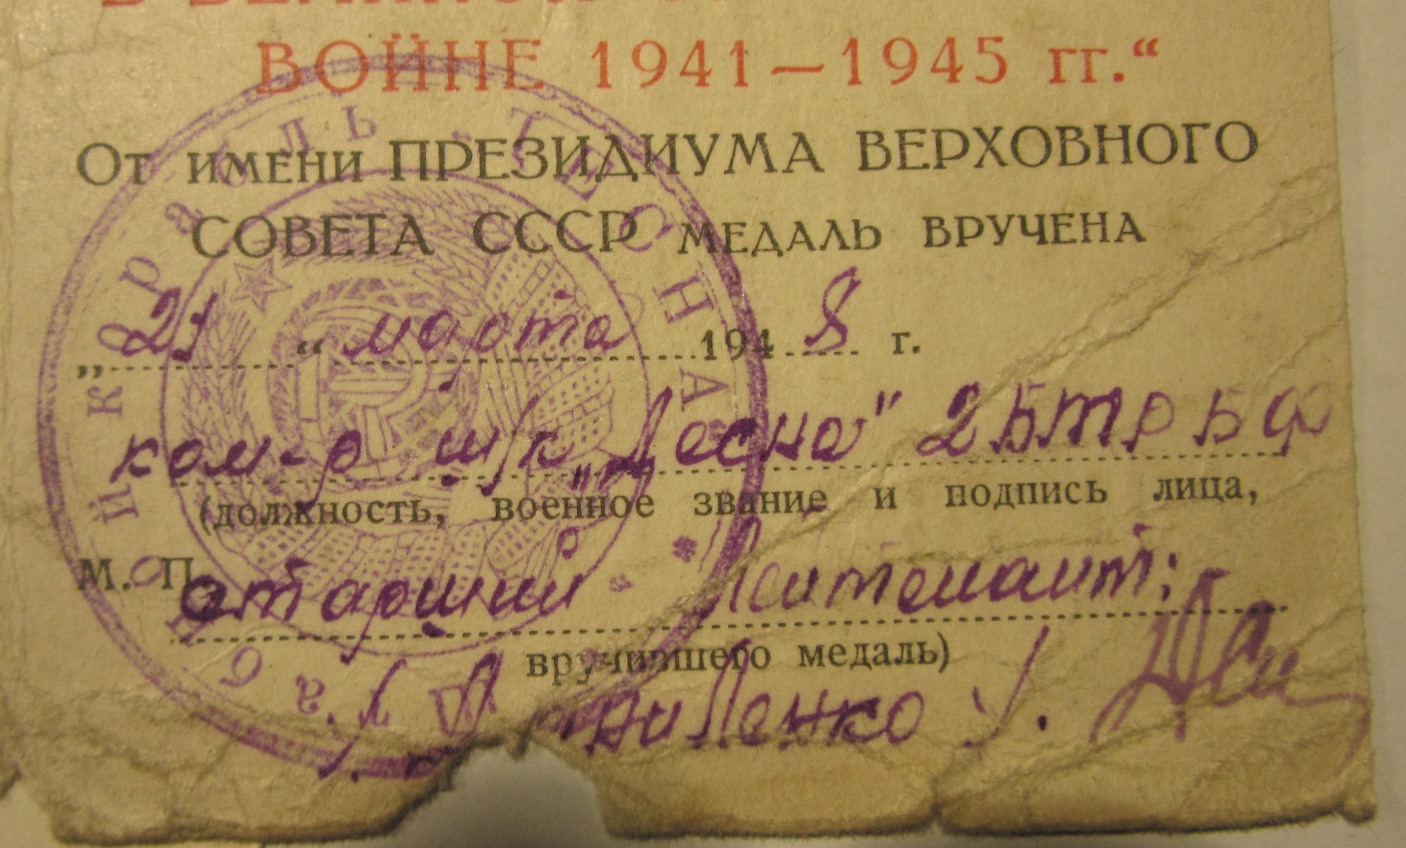 ВОЙНЕ 1941—1945 гг.“
От имени ПРЕЗИДИУМА ВЕРХОВНОГО
СОВЕТА СССР МЕДАЛЬ ВРУЧЕНА
„21“ марта 1948 г.
ком-р ш/к „Десна" 2 БТР БФ
(должность, военное звание и подпись лица,
М. П.
старший лейтенант:
вручившего медаль)
/Даниленко/.
Штаб
корабль "ДЕСНА"